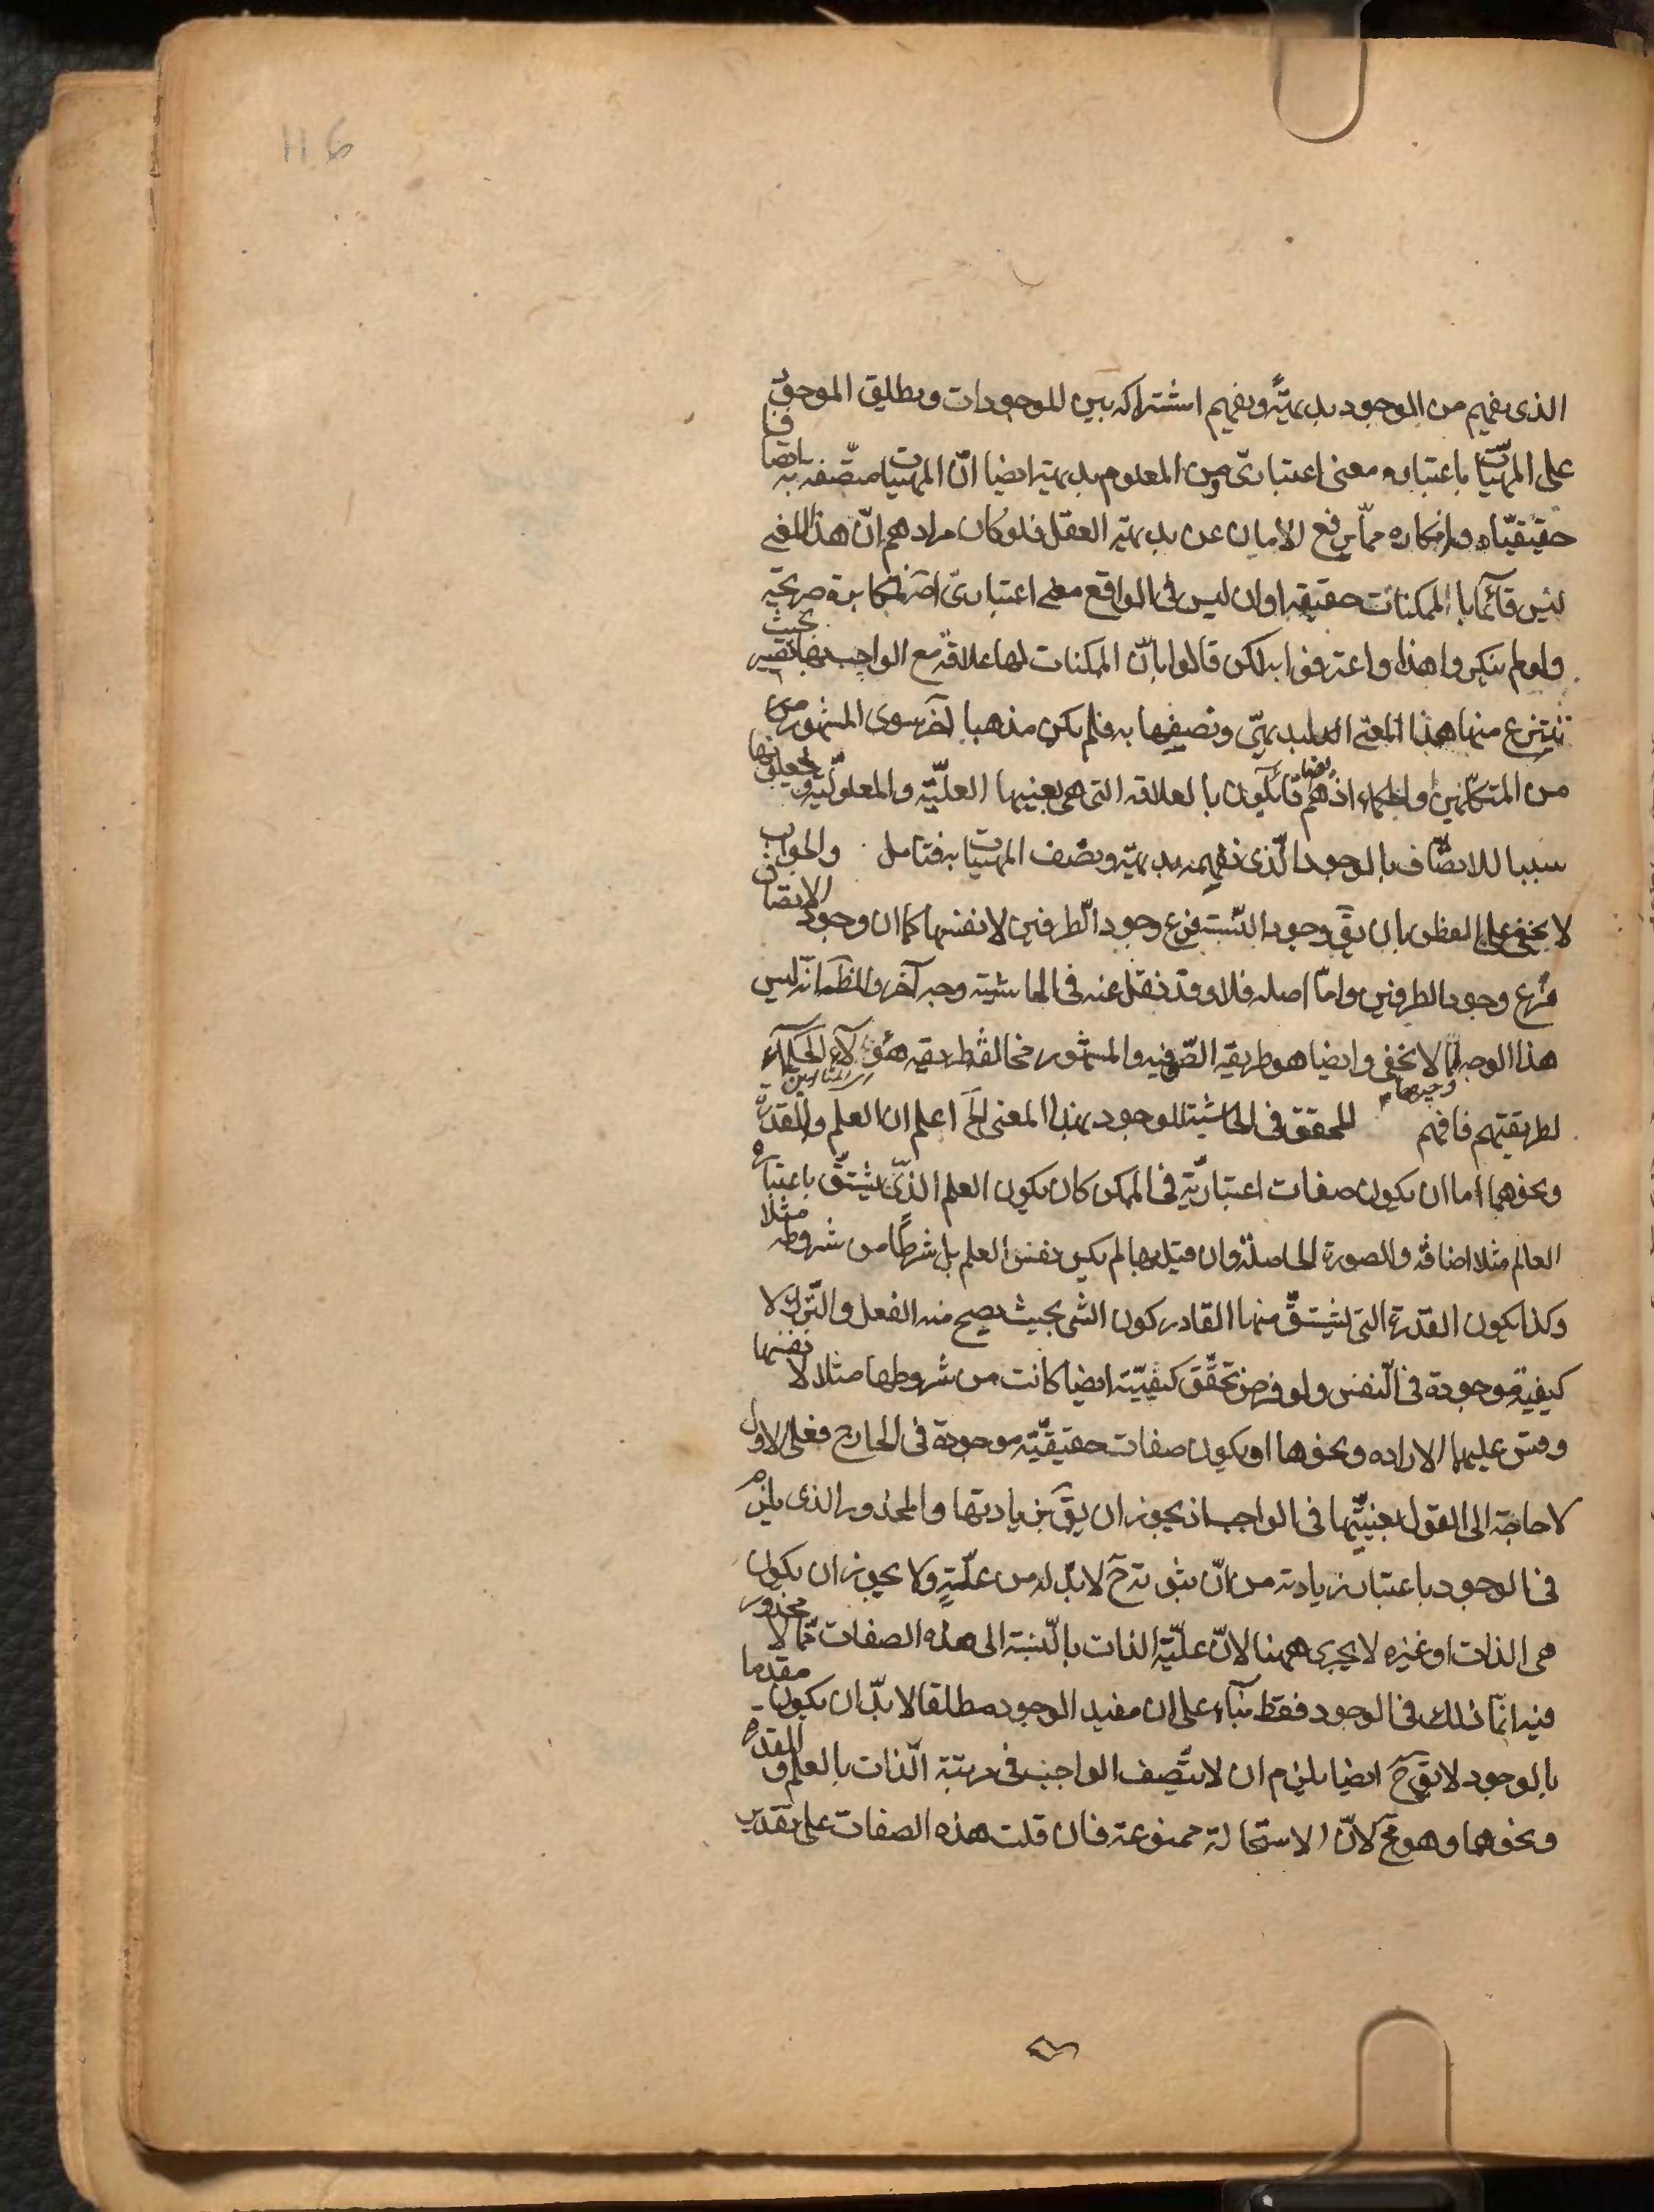 116
الذى يفهم من الموجود بديهيّةً ويفهم اشتراكه بين الموجودات ويطلق الموجود
على المهيّات باعتباره معنى اعتبارىّ ومن المعلوم بديهة ايضا انّ المهيات متّصفة به اتصافا
حقيقيّا وانكاره ممّا يرفع الامان عن بديهة العقل فلو كان مرادهم انّ هذا المعنى
ليس قائما بالممكنات حقيقة اوان ليس فى الواقع معنى اعتبارىّ اصلا فمكابرة صريحة
ولو لم ينكروا هذا واعترفوا به لكن قالوا بانّ الممكنات لها علاقة مع الواجب بها تصير بحيث
تنتزع منها هذا المعنى البديهىّ ونصفها به فلم يكن مذهبا آخر سوى المشهور من
من المتكلّمين والحكماء اذ هم ايضا قائلون بالعلاقة التى هى بعينها العليّة والمعلوليّة ويجعلونها
سببا للاتصاف بالوجود الّذى نفهمه بديهيّة ونصف المهيات به فتامل والجواب
لا يخفى على الفطن بان يقَ وجود النّسبة فرع وجود الطرفين لا نفسها كما ان وجود الاتصاف
فرع وجود الطرفين وامّا اصله فلا وقد نقل عنه فى الحاشية وجه آخر والظّ انّه ليس
هذا الوجه لما لا يخفى وايضا هو طريقة الصّوفية والمشهور مخالفة طريقة هؤلاء الحكماء المتألهين
لطريقتهم فافهم وجيهها للمحقق فى الحاشية للوجود بهذا المعنى الخَ اعلم ان العلم والقدرة
ونحوهما اما ان يكون صفات اعتباريّة فى الممكن كان يكون العلم الذّى يشتقّ باعتباره
العالم مثلا اضافة والصورة الحاصلة وان قيل بها لم يكن نفس العلم بل شرطًا من شروطه مثلا
وكذا يكون القدرة التى يشتقّ منها القادر كون الشى بحيث يصح منه الفعل والتّرك لا
كيفية موجودة فى النّفس ولو فرض تحقّق كيفيّة ايضا كانت من شروطها مثلا لا نفسها
وقس عليهما الاراده ونحوها او يكون صفات حقيقيّة موجودة فى الخارج فعلى الاول
لا حاجة الى القول بعينيّتها فى الواجب اذ يجوز ان يقَ بزيادتها والمحذور الذى يلزم
فى الوجود باعتبار زيادته من انّ ثبوته حَ لا بدّ له من علّةٍ ولا يجوز ان يكون
هى الذات او غيره لا يجرى ههنا لانّ عليّة الذات بالنّسبة الى هذه الصفات ممّا لا محذور
فيه انّما ذلك فى الوجود فقط بناء على ان مفيد الوجود مطلقا لا بدّ ان يكون مقدما
بالوجود لا يقَ حَ ايضا يلزم ان لا يتّصف الواجب فى مرتبة الذات بالعلم والقدره
ونحوهما وهو مح لانّ الاستحالة ممنوعة فان قلت هذه الصفات على تقدير